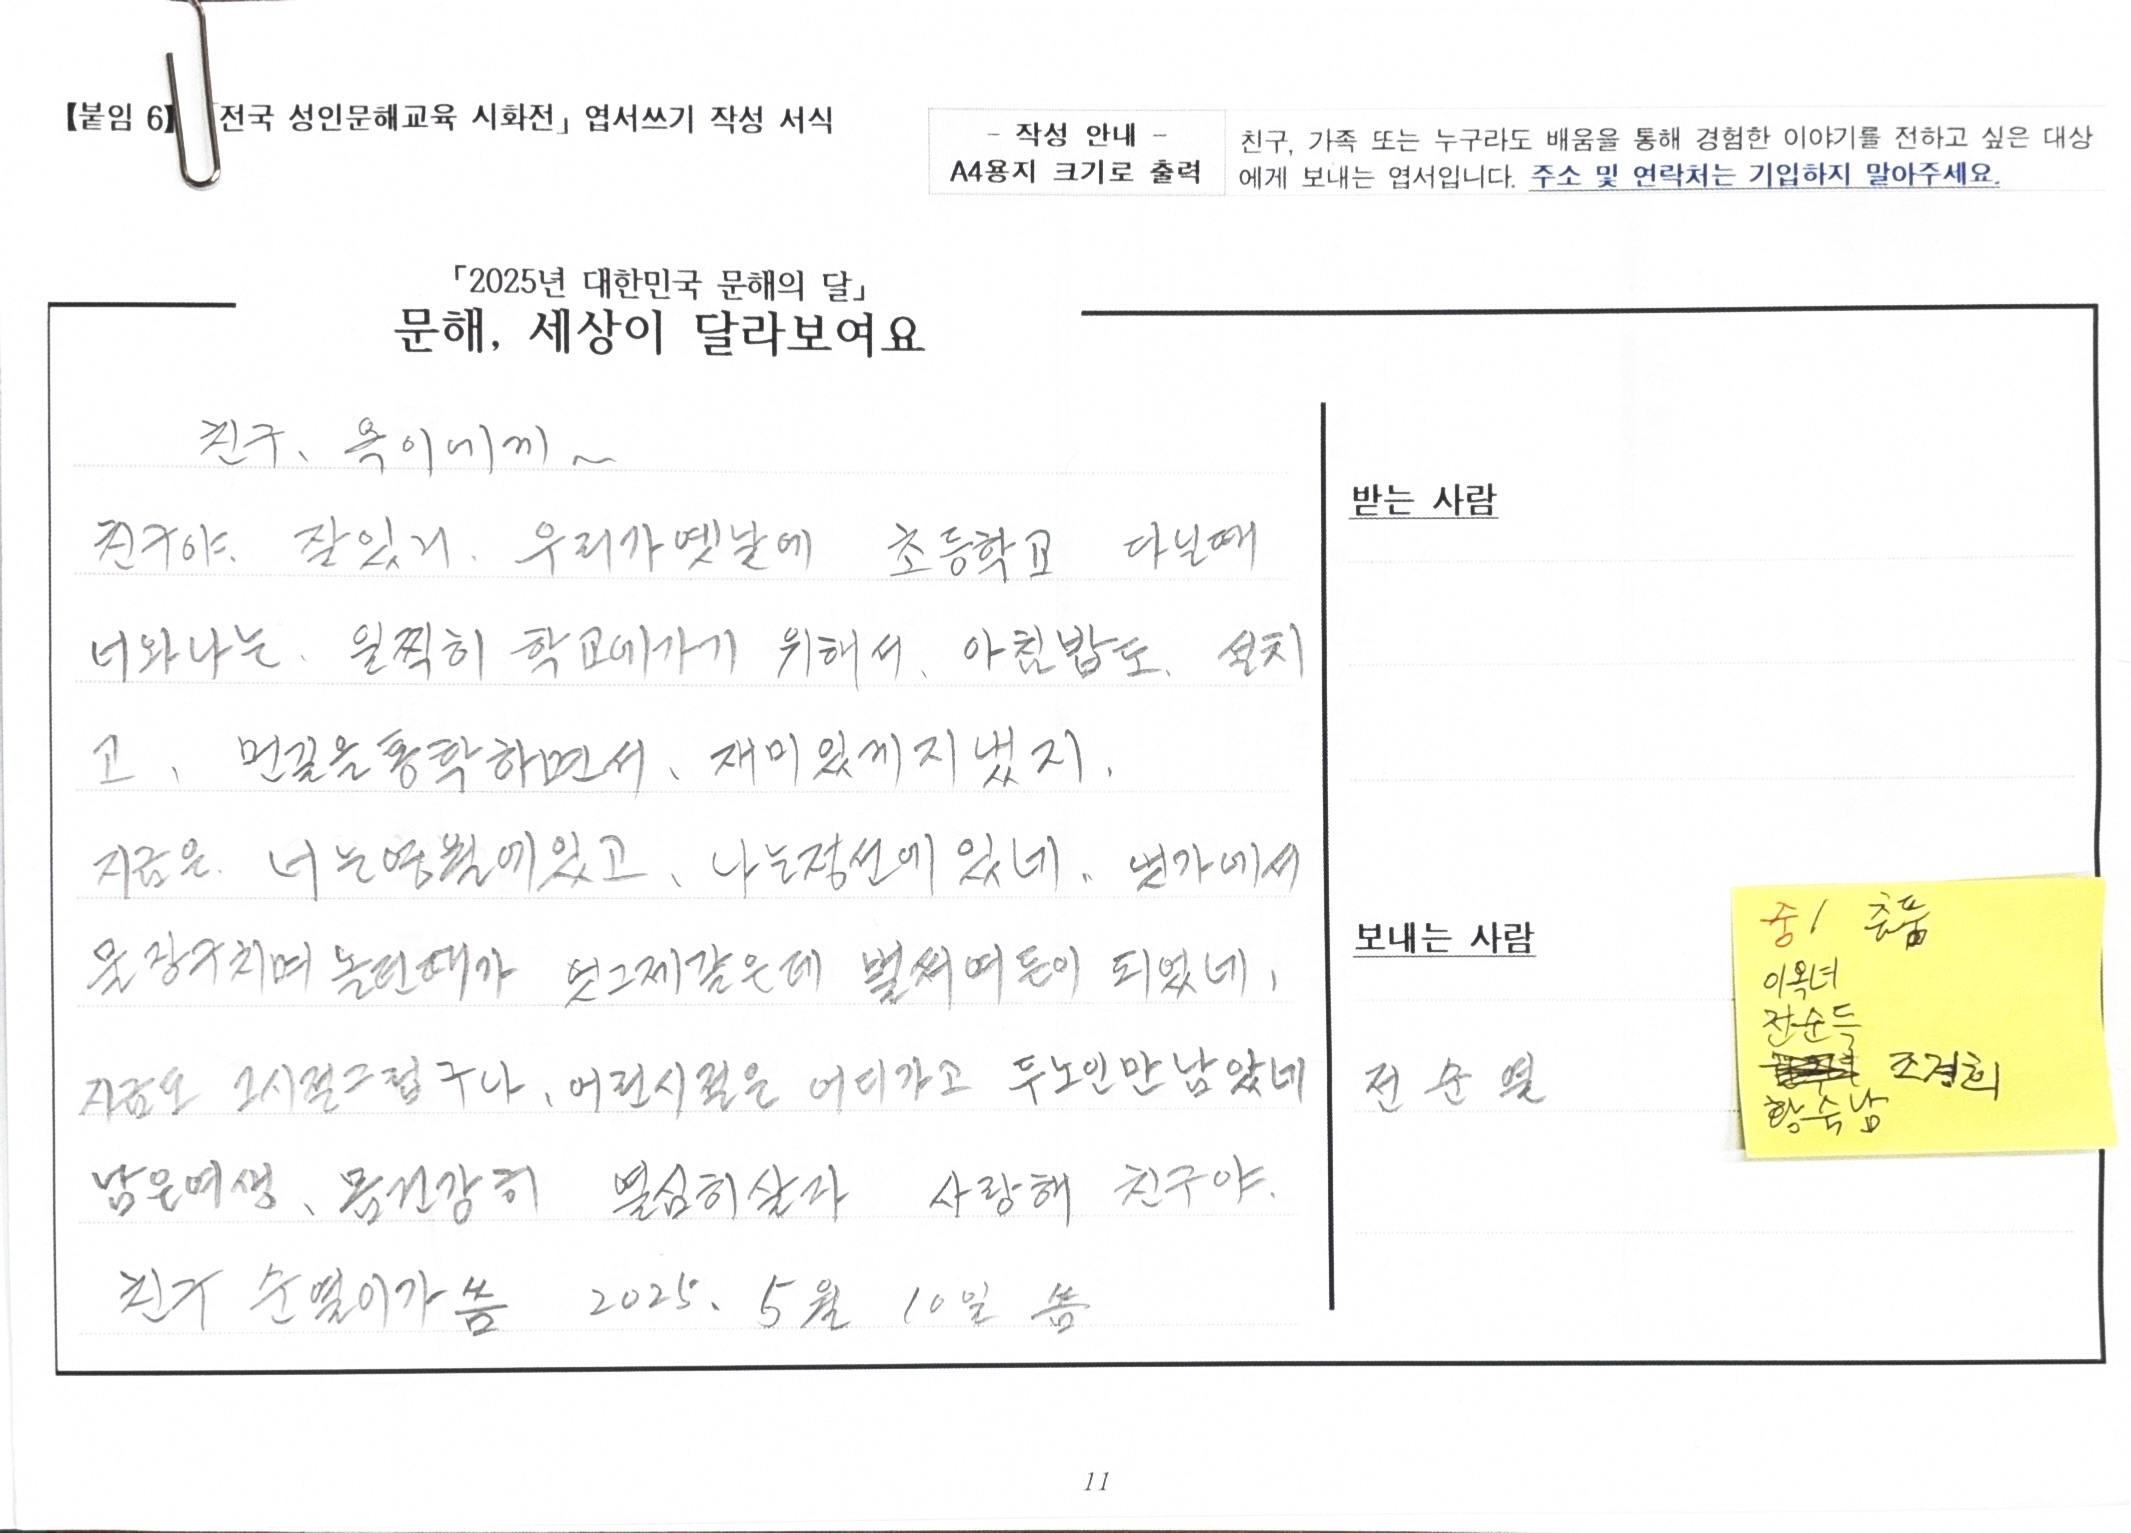 【붙임 6】「전국 성인문해교육 시화전」 엽서쓰기 작성 서식
- 작성 안내 -
A4용지 크기로 출력
친구, 가족 또는 누구라도 배움을 통해 경험한 이야기를 전하고 싶은 대상
에게 보내는 엽서입니다. 주소 및 연락처는 기입하지 말아주세요.
「2025년 대한민국 문해의 달」
문해, 세상이 달라보여요
친구、옥이에께 ~
친구야. 잘있지. 우리가옛날에 초등학교 다닐때
너와나는. 일찍히 학교에가기 위해서、아침밥도、설치
고、먼길을통학하면서、재미있께지냈지.
지금은. 너는영월에있고、나는정선에있네、냇가에서
물장구치며놀던때가 엇그제같은데 벌써여든이 되었네,
지금도 그시절그립구나、어린시절은 어디가고 두노인만남았네
남은여생、몸건강히 열심히살자 사랑해 친구야.
친구 순열이가씀 2025、5월 10일 씀
받는 사람
보내는 사람
전순열
중1 출품
이옥녀
전순득
조경희
황숙남
11